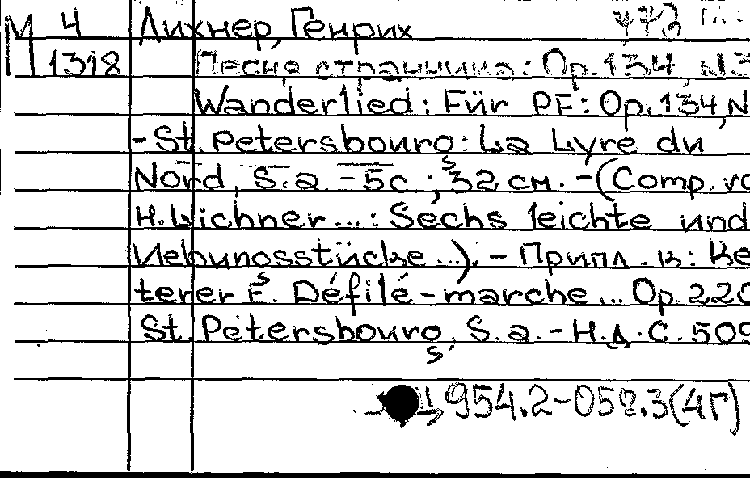 М 4 Лихнер, Генрих 773
1318 Песня странника: Op. 134, N.3
Wanderlied: Für PF: Op. 134, N
- St. Petersbourg: La Lyre du
Nord, S. a. - 5c ; 32 см. - (Comp. vo
H. Lichner...: Sechs leichte und
Uebungsstücke...). - Припл. к: Be
terer F. Défilé-marche... Op. 220
St. Petersbourg, S. a. - Н.Д.С. 509
954.2-058.3(4Г)